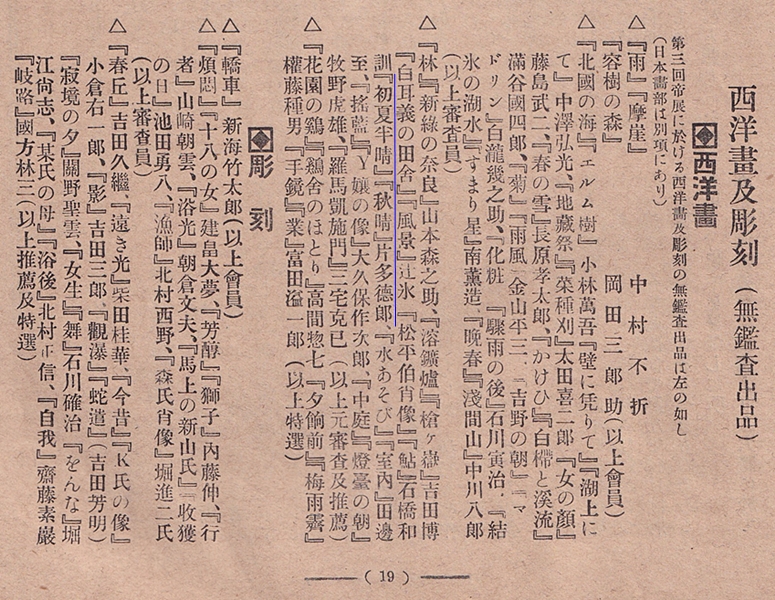 西洋畫及彫刻（無鑑査出品）
第三回帝展に於ける西洋畫及彫刻の無鑑査出品は左の如し
（日本畫部は別項にあり）
西洋畫
△『雨』『摩崖』 中村不折
『容樹の森』 岡田三郎助（以上會員）
△『北國の海』『エルム樹』小林萬吾『壁に凭りて』『湖上に
て』中澤弘光、『地藏祭』『菜種刈』太田喜二郎『女の顔』
藤島武二、『春の雪』長原孝太郎、『かけひ』『白樺と溪流』
滿谷國四郎、『菊』『雨風』金山平三、『吉野の朝』『マ
ドリン』白瀧幾之助、『化粧』『驟雨の後』石川寅治、『結
氷の湖水』『すまり星』南薰造、『晩春』『淺間山』中川八郎
（以上審査員）
△『林』『新綠の奈良』山本森之助、『溶鑛爐』『槍ヶ嶽』吉田博
『白耳義の田舍』『風景』辻永『松平伯肖像』『鮎』石橋和
訓『初夏半晴』『秋晴』片多德郎、『水あそび』『室內』田邊
至、『搖籃』『Y孃の像』大久保作次郎、『中庭』『燈臺の朝』
牧野虎雄、『羅馬凱施門』三宅克已（以上元審査及推薦）
△『花園の鷄』『鷄舍のほとり』高間惣七『夕餉前』『梅雨霽』
權藤種男『手鏡』『菜』富田溢一郎（以上特選）
彫刻
△『轎車』新海竹太郎（以上會員）
△『煩悶』『十八の女』建畠大夢、『芳醇』『獅子』內藤伸、『行
者』山崎朝雲、『浴光』朝倉文夫、『馬上の新山氏』『收獲
の日』池田勇八、『漁師』北村西野、『森氏肖像』堀進二氏
（以上審査員）
△『春丘』吉田久繼、『遠き光』柴田桂華、『今昔』『K氏の像』
小倉右一郎、『影』吉田三郎、『觀瀑』『蛇遣』（吉田芳明）
『寂境の夕』關野聖雲、『女生』『舞』石川確治『をんな』堀
江尙志、『某氏の母』『浴後』北村正信、『自我』齋藤素巖
『岐路』國方林三（以上推薦及特選）
（19）